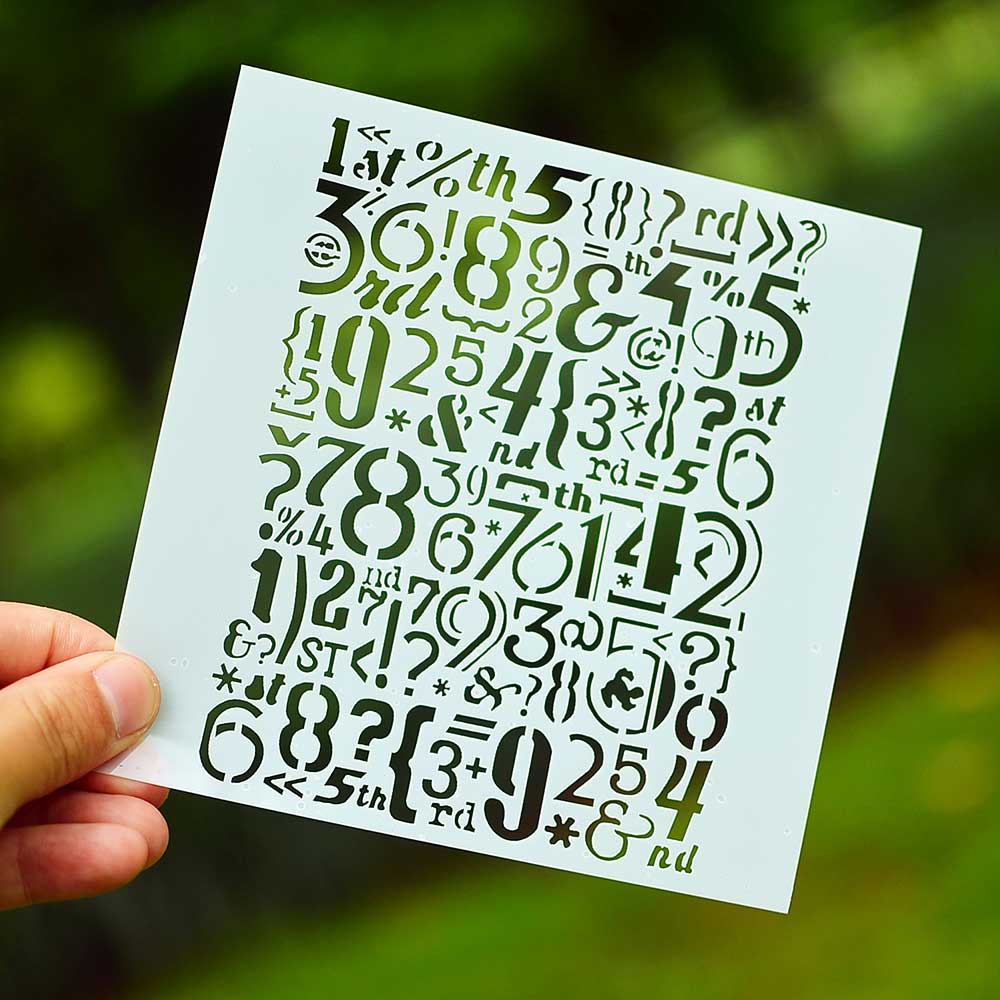 1st « % th 5 {8}? rd »?
3 % 6! 8 9 = & th 4 % 5 *
@ rd 2 @! 9 th
{1 9 2 5 4 { » * 8 ? st
+5 * & < nd 3 < rd = 5 6
? 7 8 39 th 1 4 2
% 4 6 * 7 6 *
1) 2 nd 7 ! 7 9 3 @ 5 < ?}
&? ST < ? * & ? 8 0
* st
6 8 ? { = 3 + 9 2 5 4
« 5th rd * & nd